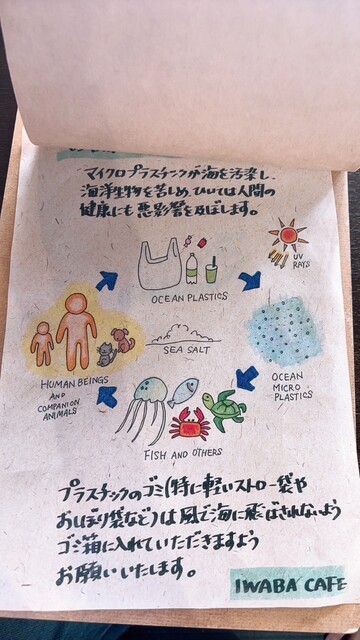 マイクロプラスチックが海を汚染し、
海洋生物を苦しめ、ひいては人間の
健康にも悪影響を及ぼします。
UV
RAYS
OCEAN PLASTICS
SEA SALT
HUMAN BEINGS
AND
COMPANION
ANIMALS
OCEAN
MICRO
PLASTICS
FISH AND OTHERS
プラスチックのゴミ(特に軽いストロー袋や
おしぼり袋など)は風で海に飛ばされないよう
ゴミ箱に入れていただきますよう
お願いいたします。
IWABA CAFE